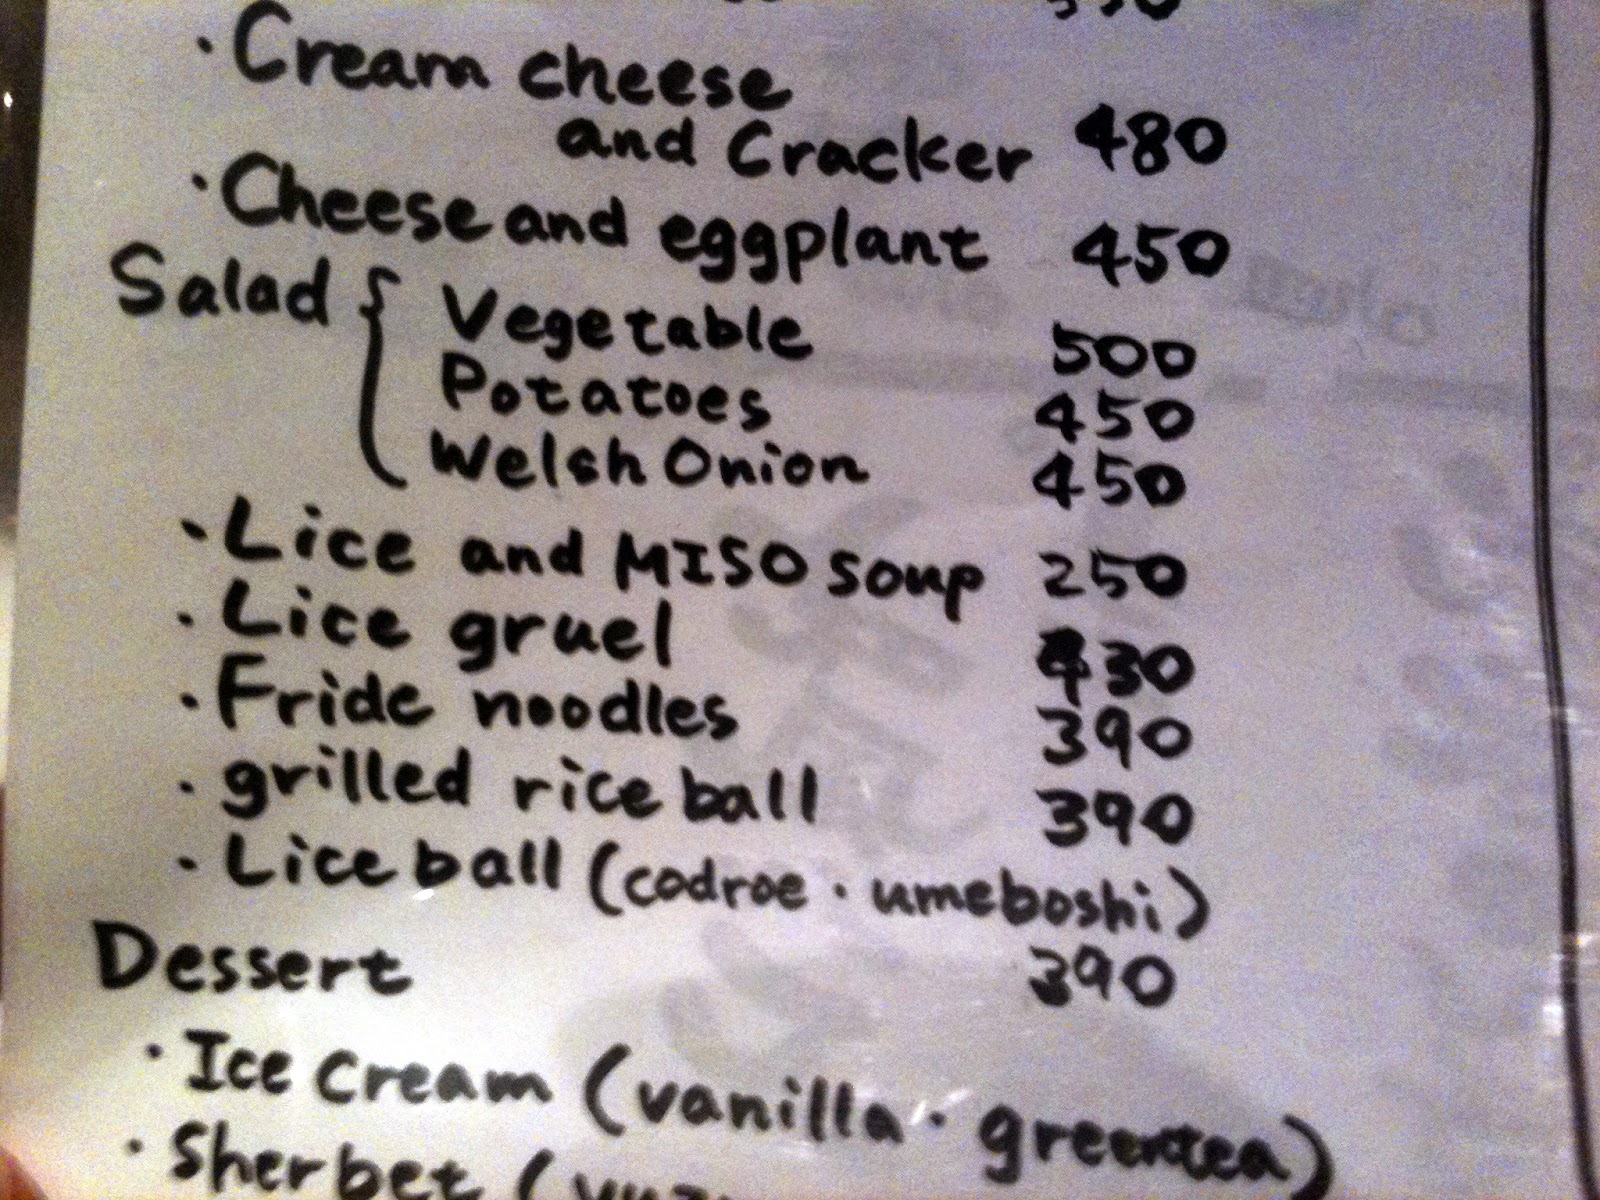 · Cream cheese
and Cracker 480
· Cheese and eggplant 450
Salad { Vegetable 500
Potatoes 450
Welsh Onion 450
· Lice and MISO soup 250
· Lice gruel 430
· Fride noodles 390
· grilled rice ball 390
· Lice ball (codroe · umeboshi)
390
Dessert
· Ice Cream (vanilla · greentea)
· Sherbet (